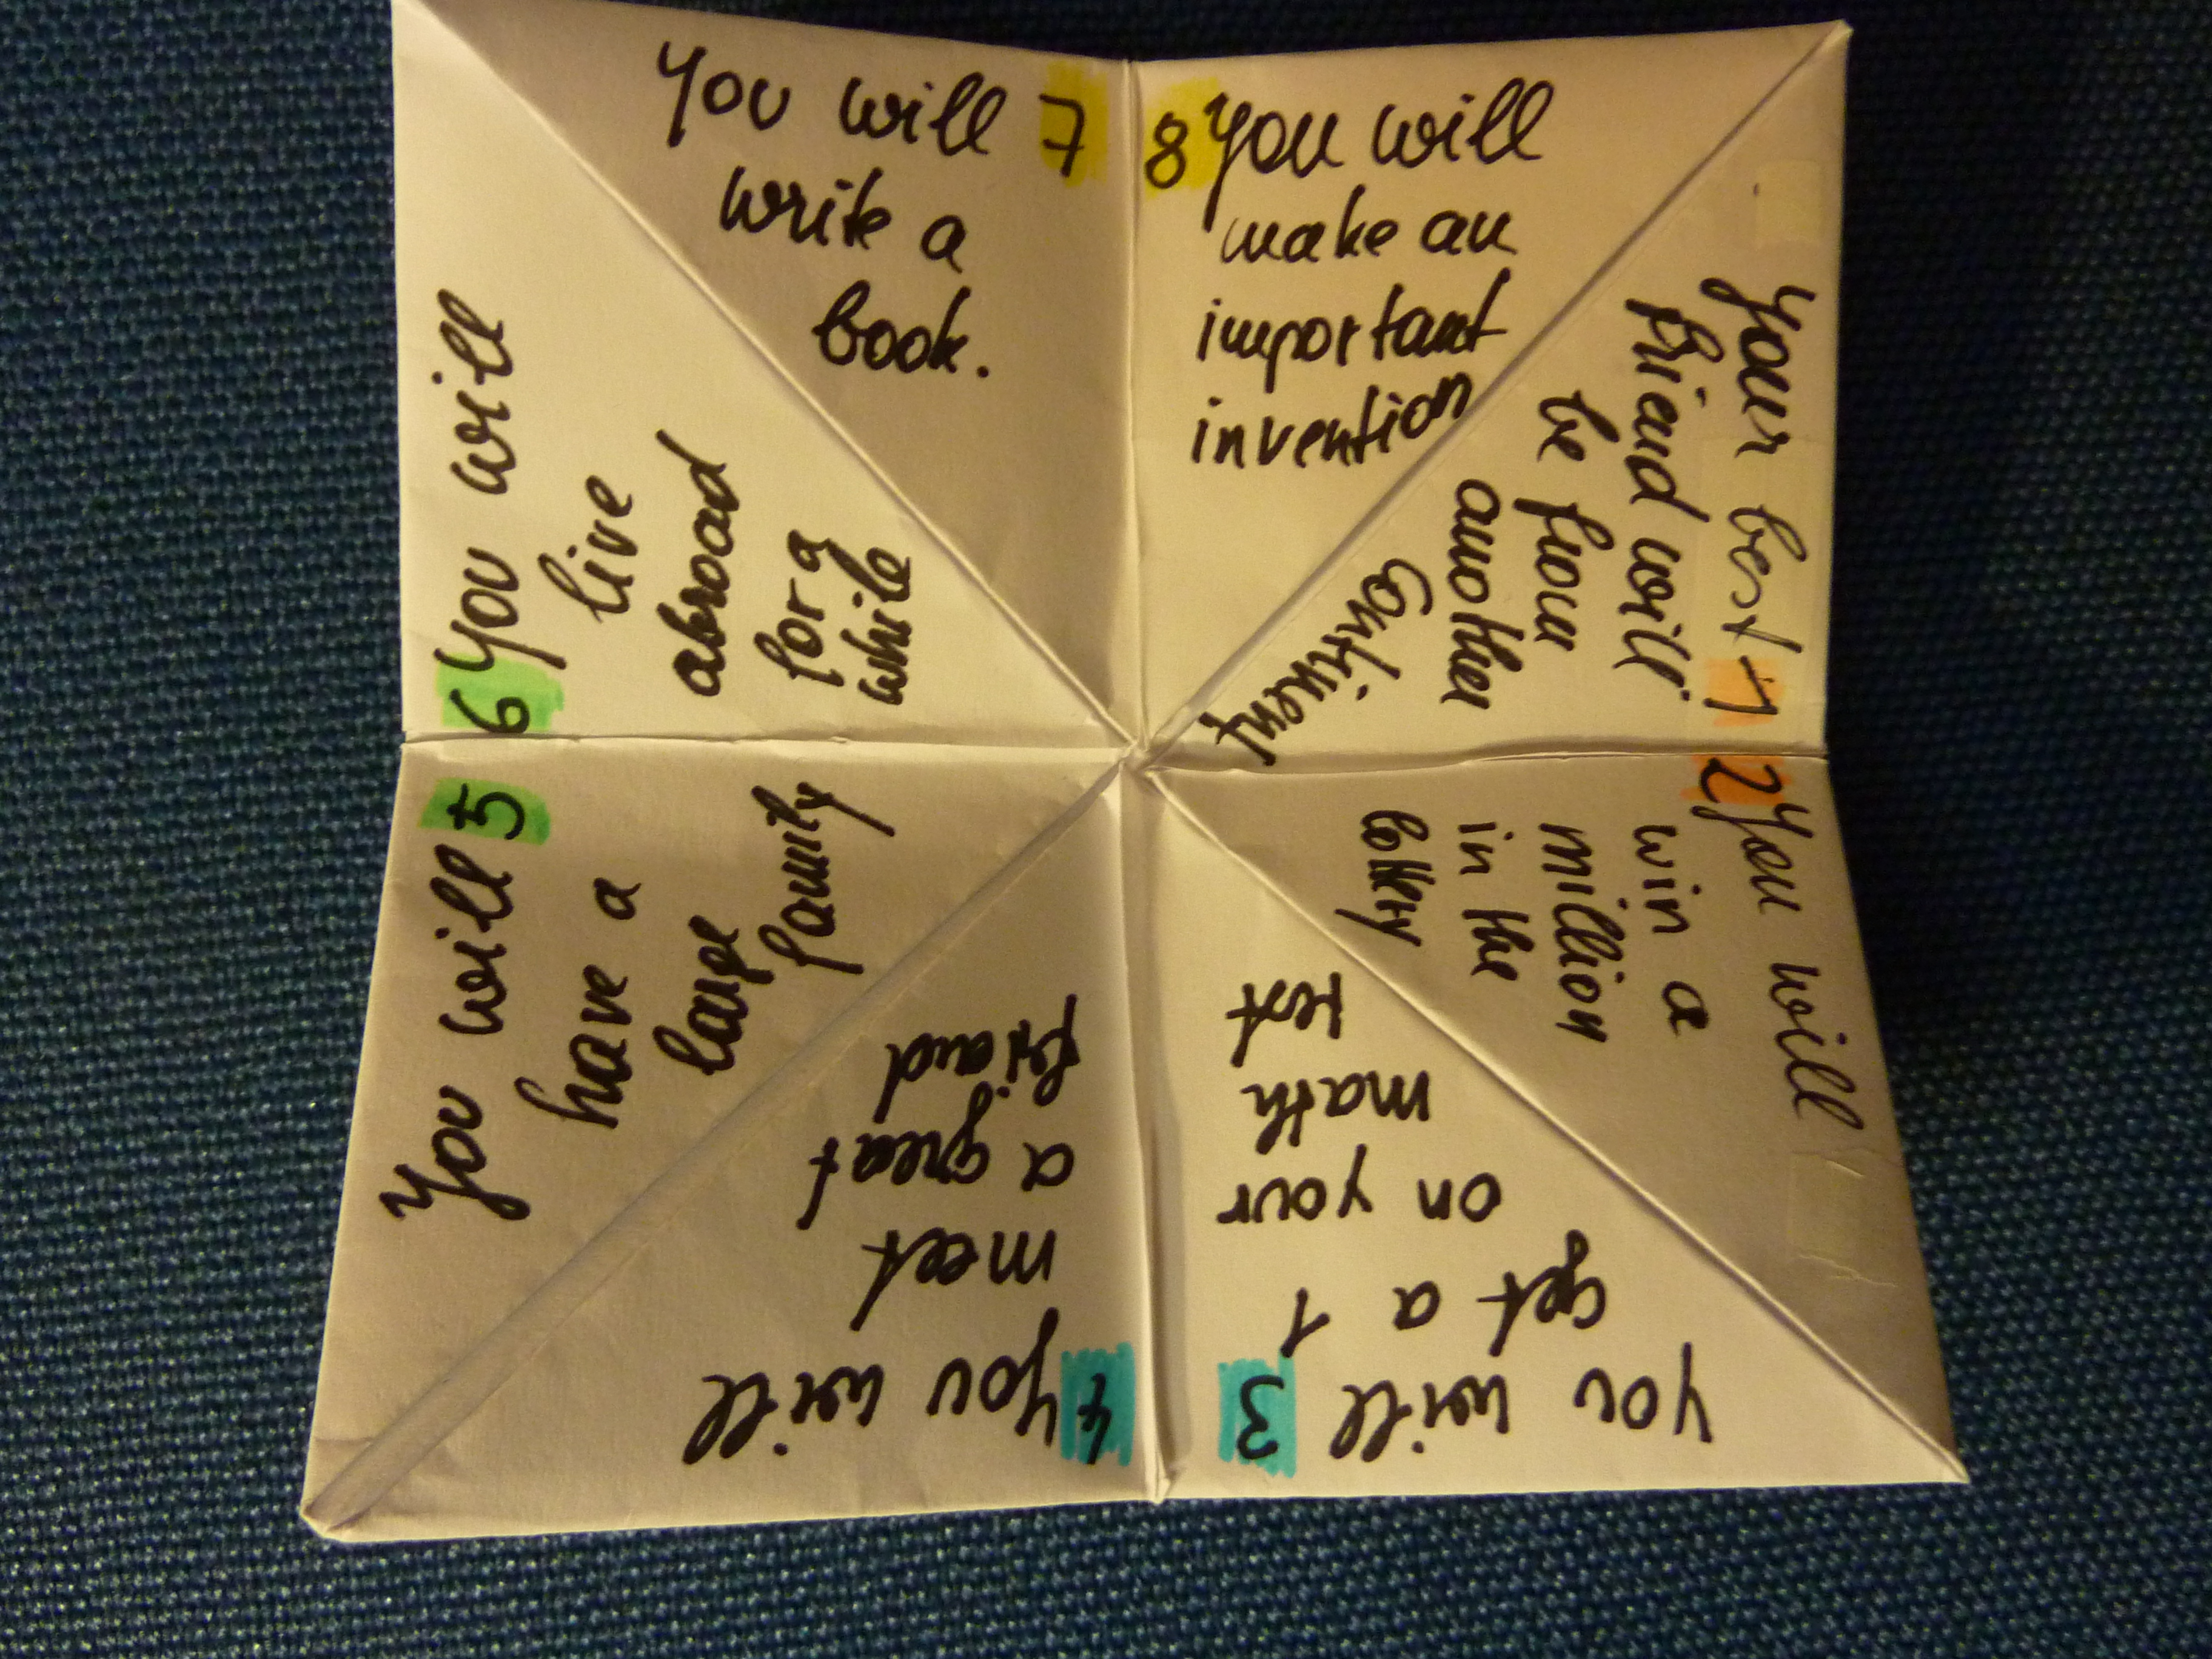 1 Your best
friend will
be from
another
continent
2 You will
win a
million
in the
lottery
3 You will
get a 1
on your
math
test
4 You will
meet
a great
friend
5 You will
have a
large
family
6 You will
live
abroad
for a
while
7 You will
write a
book.
8 You will
make an
important
invention